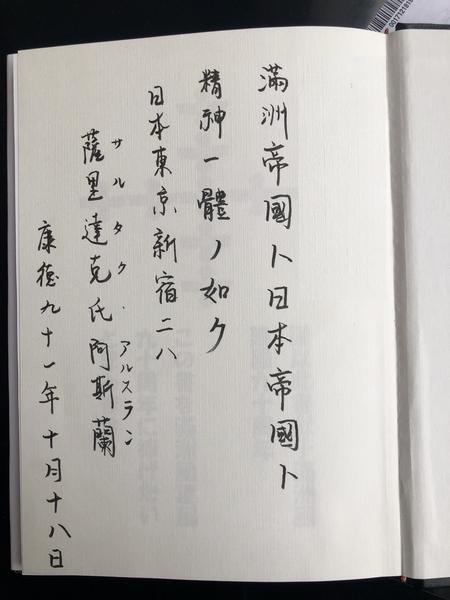 滿洲帝國ト日本帝國ト
精神一體ノ如ク
日本東京新宿二八
サルタク・アルスラン
薩里達克氏阿斯蘭
康德九十一年十月十八日